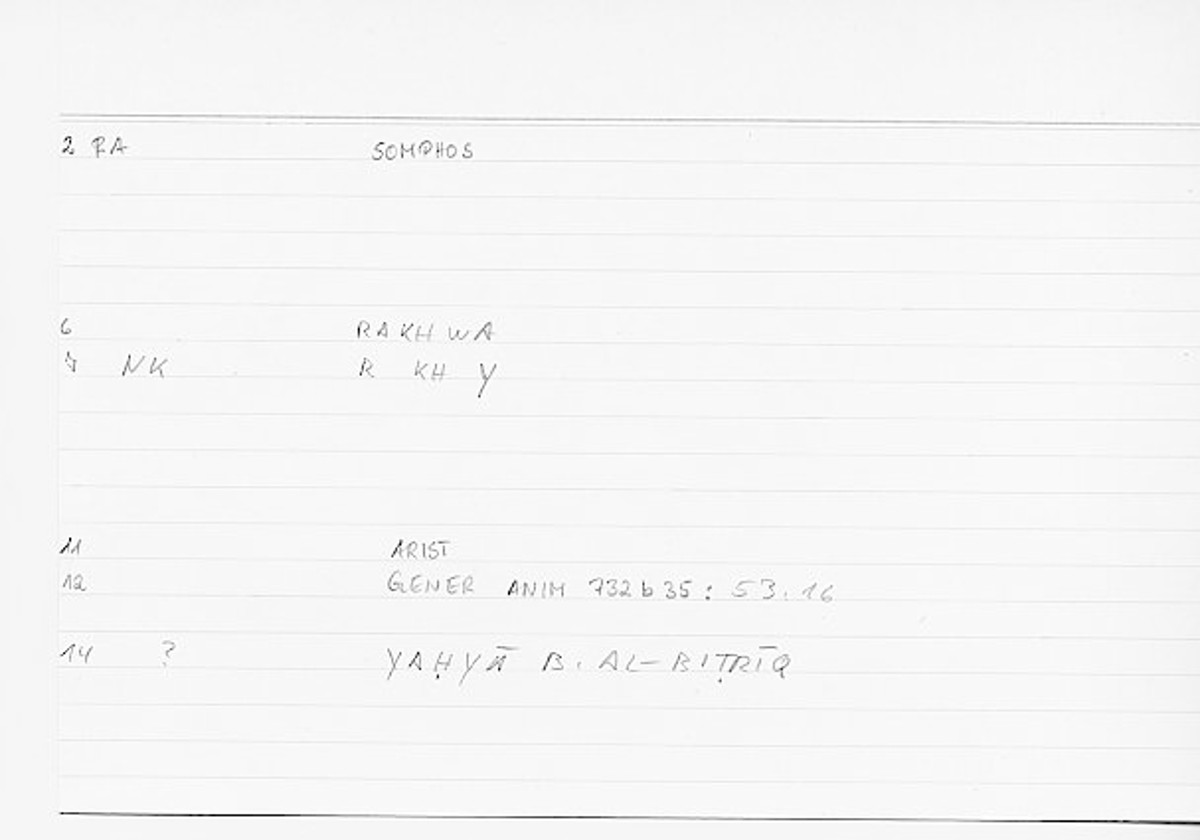 2 RA SOMPHOS
6 RAKHWA
7 NK R KH Y
11 ARIST
12 GENER ANIM 732 b 35 : 53.16
14 ? YAḤYĀ B. AL-BIṬRĪQ